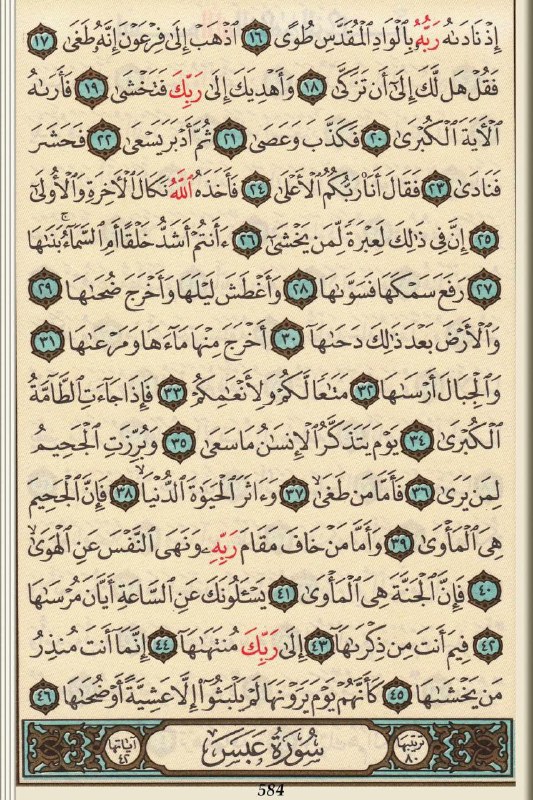 إِذْ نَادَىٰهُ رَبُّهُۥ بِٱلْوَادِ ٱلْمُقَدَّسِ طُوًى ١٦ ٱذْهَبْ إِلَىٰ فِرْعَوْنَ إِنَّهُۥ طَغَىٰ ١٧
فَقُلْ هَل لَّكَ إِلَىٰٓ أَن تَزَكَّىٰ ١٨ وَأَهْدِيَكَ إِلَىٰ رَبِّكَ فَتَخْشَىٰ ١٩ فَأَرَىٰهُ
ٱلْأَيَةَ ٱلْكُبْرَىٰ ٢٠ فَكَذَّبَ وَعَصَىٰ ٢١ ثُمَّ أَدْبَرَ يَسْعَىٰ ٢٢ فَحَشَرَ
فَنَادَىٰ ٢٣ فَقَالَ أَنَا۠ رَبُّكُمُ ٱلْأَعْلَىٰ ٢٤ فَأَخَذَهُ ٱللَّهُ نَكَالَ ٱلْأَخِرَةِ وَٱلْأُولَىٰٓ
٢٥ إِنَّ فِى ذَٰلِكَ لَعِبْرَةً لِّمَن يَخْشَىٰٓ ٢٦ ءَأَنتُمْ أَشَدُّ خَلْقًا أَمِ ٱلسَّمَآءُ ۚ بَنَىٰهَا
٢٧ رَفَعَ سَمْكَهَا فَسَوَّىٰهَا ٢٨ وَأَغْطَشَ لَيْلَهَا وَأَخْرَجَ ضُحَىٰهَا ٢٩
وَٱلْأَرْضَ بَعْدَ ذَٰلِكَ دَحَىٰهَآ ٣٠ أَخْرَجَ مِنْهَا مَآءَهَا وَمَرْعَىٰهَا ٣١
وَٱلْجِبَالَ أَرْسَىٰهَا ٣٢ مَتَٰعًا لَّكُمْ وَلِأَنْعَٰمِكُمْ ٣٣ فَإِذَا جَآءَتِ ٱلطَّآمَّةُ
ٱلْكُبْرَىٰ ٣٤ يَوْمَ يَتَذَكَّرُ ٱلْإِنسَٰنُ مَا سَعَىٰ ٣٥ وَبُرِّزَتِ ٱلْجَحِيمُ
لِمَن يَرَىٰ ٣٦ فَأَمَّا مَن طَغَىٰ ٣٧ وَءَاثَرَ ٱلْحَيَوٰةَ ٱلدُّنْيَا ٣٨ فَإِنَّ ٱلْجَحِيمَ
هِىَ ٱلْمَأْوَىٰ ٣٩ وَأَمَّا مَنْ خَافَ مَقَامَ رَبِّهِۦ وَنَهَى ٱلنَّفْسَ عَنِ ٱلْهَوَىٰ
٤٠ فَإِنَّ ٱلْجَنَّةَ هِىَ ٱلْمَأْوَىٰ ٤١ يَسْـَٔلُونَكَ عَنِ ٱلسَّاعَةِ أَيَّانَ مُرْسَىٰهَا
٤٢ فِيمَ أَنتَ مِن ذِكْرَىٰهَآ ٤٣ إِلَىٰ رَبِّكَ مُنتَهَىٰهَآ ٤٤ إِنَّمَآ أَنتَ مُنذِرُ
مَن يَخْشَىٰهَا ٤٥ كَأَنَّهُمْ يَوْمَ يَرَوْنَهَا لَمْ يَلْبَثُوٓا۟ إِلَّا عَشِيَّةً أَوْ ضُحَىٰهَا ٤٦
ترتيبها ٨٠ سُورَةُ عَبَسَ آياتها ٤٢
584